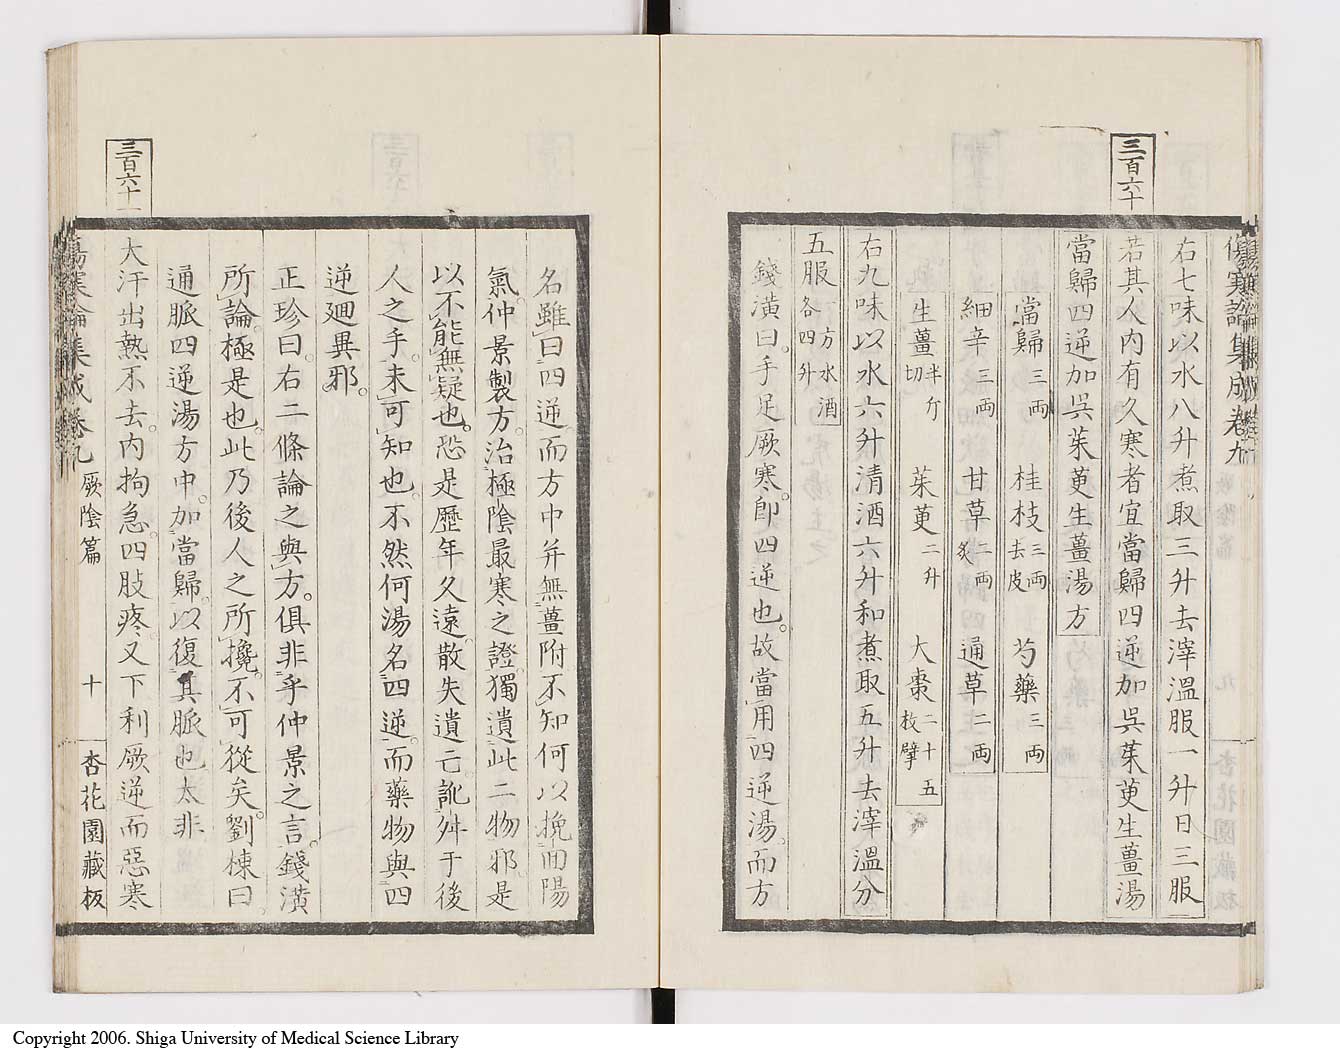 傷寒論集成卷九
右七味以水八升煮取三升去滓溫服一升日三服
三百六十
若其人內有久寒者宜當歸四逆加吳茱萸生薑湯
當歸四逆加吳茱萸生薑湯方
當歸三兩 桂枝三兩去皮 芍藥三兩
細辛三兩 甘草二兩炙 通草二兩
生薑半斤切 茱萸二升 大棗二十五枚擘
右九味以水六升清酒六升和煮取五升去滓溫分
五服一方水酒各四升
錢潢曰。手足厥寒。即四逆也。故當用四逆湯。而方
名雖曰四逆。而方中并無薑附。不知何以挽回陽
氣。仲景製方。治極陰最寒之證。獨遺此二物邪。是
以不能無疑也。恐是歷年久遠。散失遺亡。訛舛于後
人之手。未可知也。不然何湯名四逆。而藥物與四
逆廻異邪。
正珍曰。右二條論之與方。俱非乎仲景之言。錢潢
所論極是也。此乃後人之所攙。不可從矣。劉棟曰。
通脈四逆湯方中。加當歸。以復其脈也。太非
三百六十一
大汗出熱不去。內拘急。四肢疼。又下利厥逆而惡寒
傷寒論集成卷九 厥陰篇 十 杏花園藏板
Copyright 2006. Shiga University of Medical Science Library